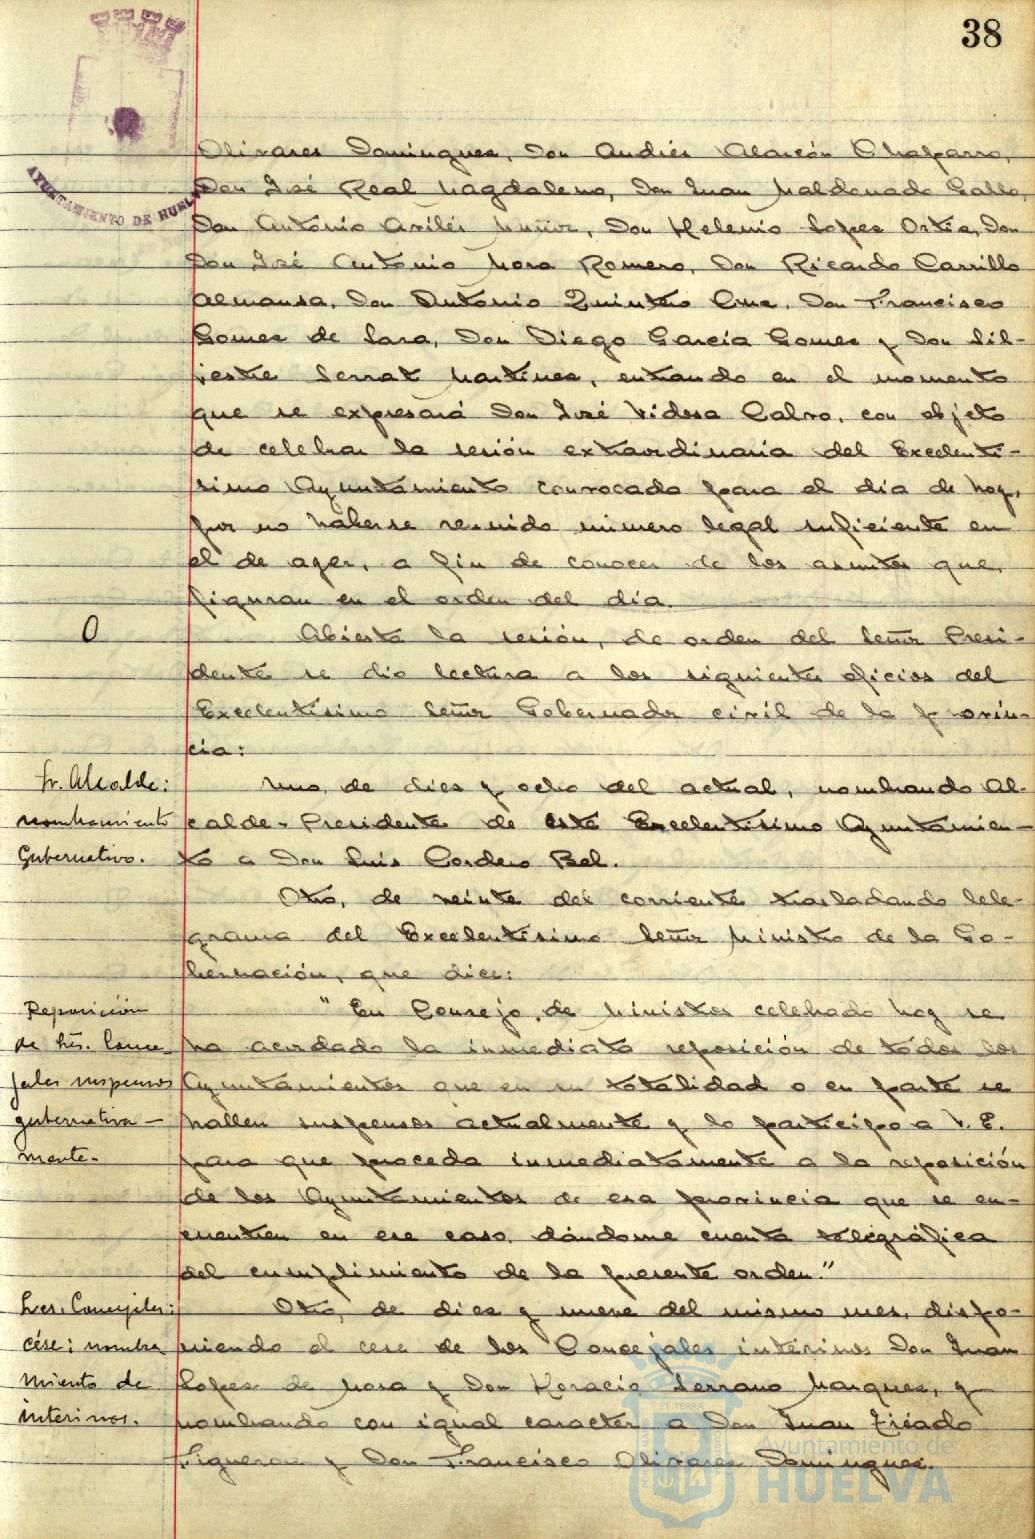 38
AYUNTAMIENTO DE HUELVA
Olivares Domingues, Don Andrés Alarcón Chaparro,
Don José Real Magdaleno, Don Juan Maldonado Gallo,
Don Antonio Avilés Muñoz, Don Helenio Lopes Ortis, Don
Don José Antonio Mora Romero, Don Ricardo Carrillo
Almansa, Don Antonio Quintero Crus, Don Francisco
Gomes de Lara, Don Diego García Gomes y Don Sil-
vestre Serrat Martines, entrando en el momento
que se expresará Don José Vidosa Calvo, con objeto
de celebrar la sesión extraordinaria del Excelentí-
simo Ayuntamiento convocada para el día de hoy,
por no haberse reunido número legal suficiente en
el de ayer, a fin de conocer de los asuntos que
figuran en el orden del día.
O
Abierta la sesión, de orden del Señor Presi-
dente se dio lectura a los siguientes oficios del
Excelentísimo Señor Gobernador civil de la provin-
cia:
Sr. Alcalde:
nombramiento
Gubernativo.
Uno, de dies y ocho del actual, nombrando Al-
calde-Presidente de este Excelentísimo Ayuntamien-
to a Don Luis Cordero Bel.
Otro, de veinte del corriente trasladando tele-
grama del Excelentísimo Señor Ministro de la Go-
bernación, que dice:
Reposición
de Sres. Conce-
jales suspensos
gubernativa-
mente.
"En Consejo de Ministros celebrado hoy se
ha acordado la inmediata reposición de todos los
Ayuntamientos que en su totalidad o en parte se
hallen suspensos actualmente y lo participo a V. E.
para que proceda inmediatamente a la reposición
de los Ayuntamientos de esa provincia que se en-
cuentren en ese caso, dándome cuenta telegráfica
del cumplimiento de la presente orden."
Sres. Concejales:
cése; nombra
miento de
interinos.
Otro, de dies y nueve del mismo mes, dispo-
niendo el cese de los Concejales interinos Don Juan
Lopes de Mora y Don Horacio Serrano Marques, y
nombrando con igual caracter a Don Juan Tirado
Figueroa y Don Francisco Olivares Domingues.
Ayuntamiento de
HUELVA